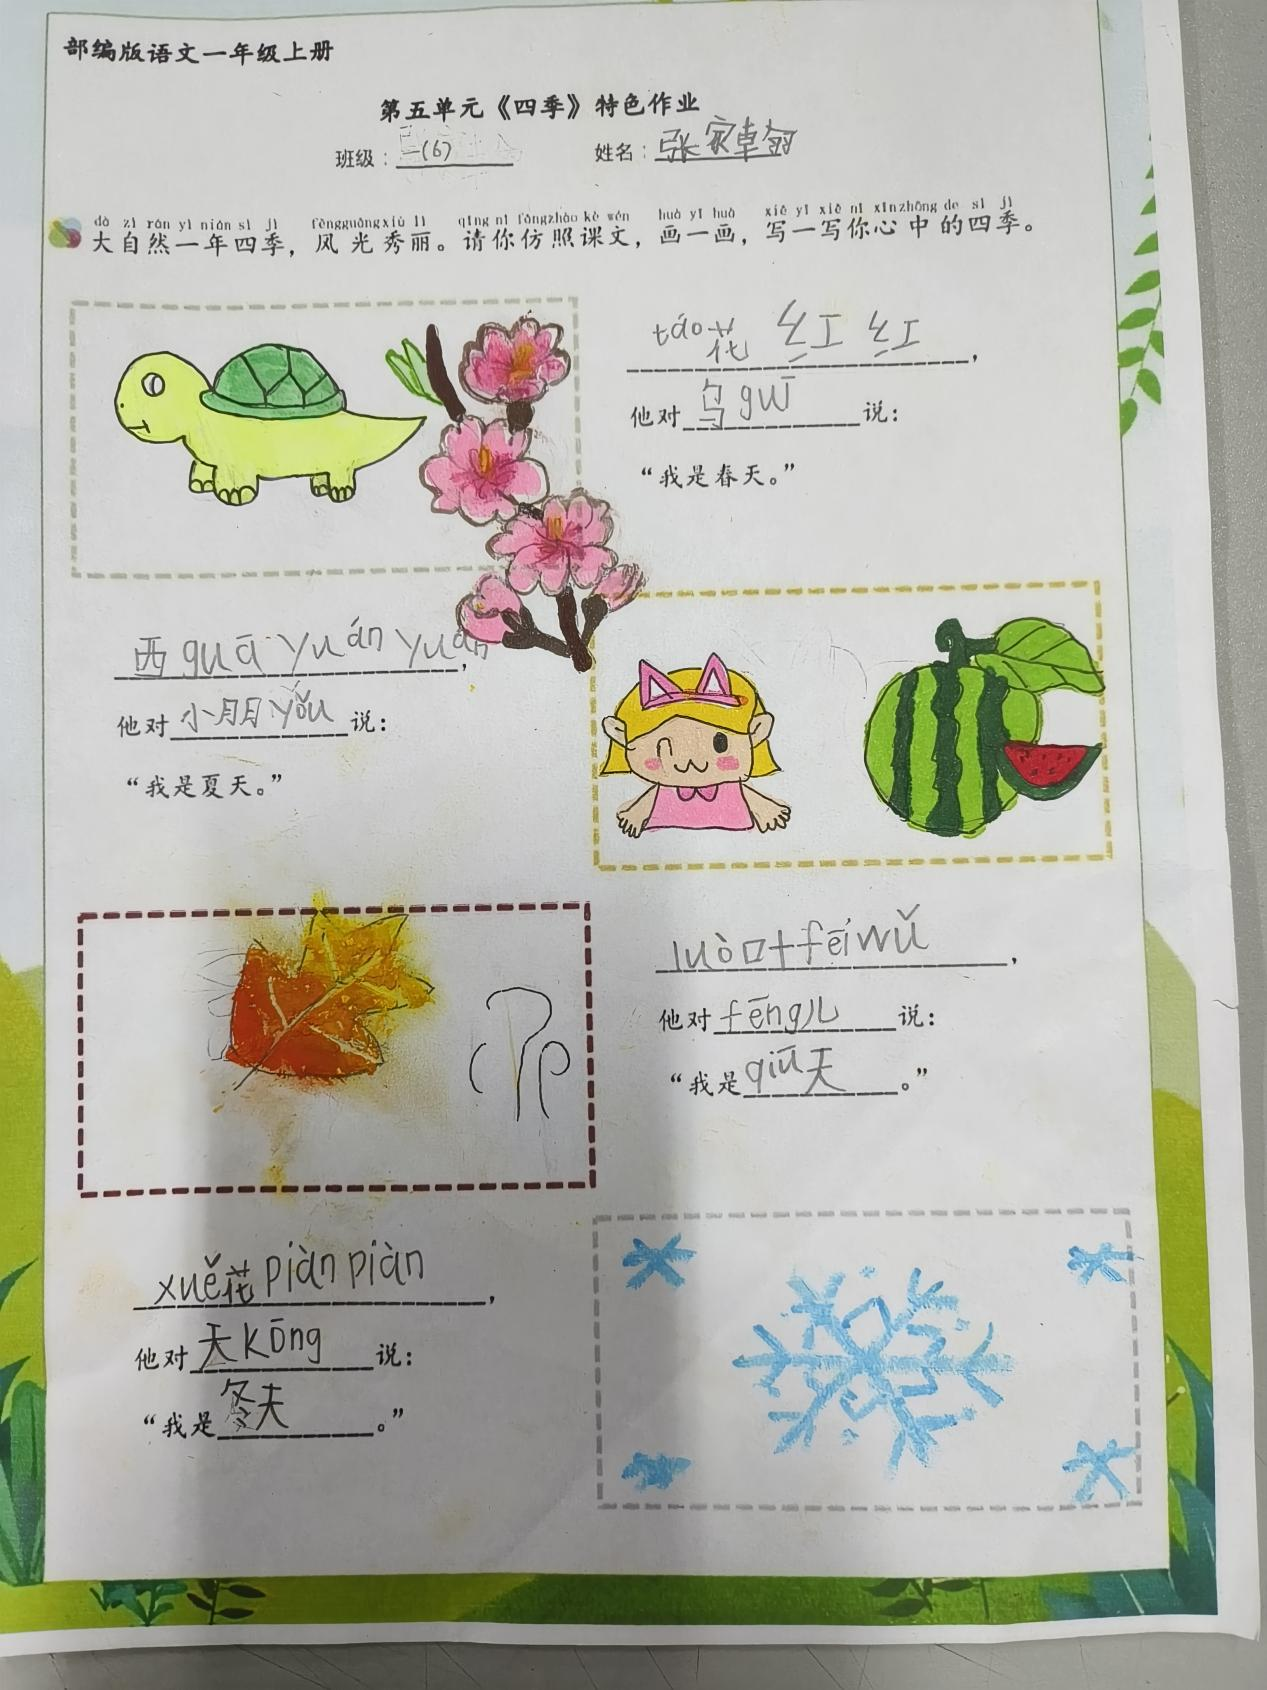 部编版语文一年级上册
第五单元《四季》特色作业
班级：一(6) 姓名：张家卓
dà zì rán yì nián sì jì fēngguāngxiù lì qǐng nǐ fǎngzhào kè wén huà yī huà xiě yī xiě nǐ xīnzhōng de sì jì
大自然一年四季，风光秀丽。请你仿照课文，画一画，写一写你心中的四季。
táo花 红红，
他对乌guī说：
“我是春天。”
西guā yuán yuán，
他对小朋yǒu说：
“我是夏天。”
luò叶fēiwǔ，
他对fēng儿说：
“我是qiū天。”
xuě花piàn piàn，
他对天kōng说：
“我是冬天。”